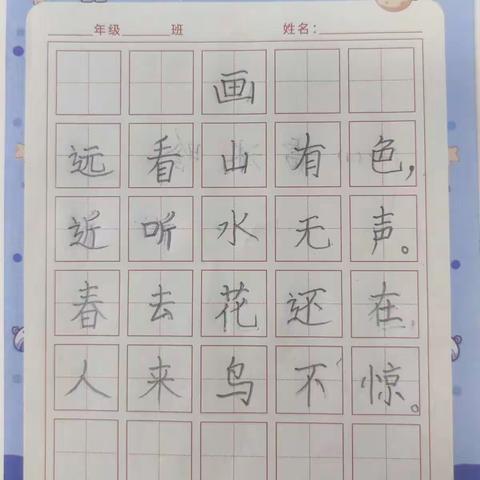 年级 班 姓名:
画
远看山有色,
近听水无声。
春去花还在
人来鸟不惊。